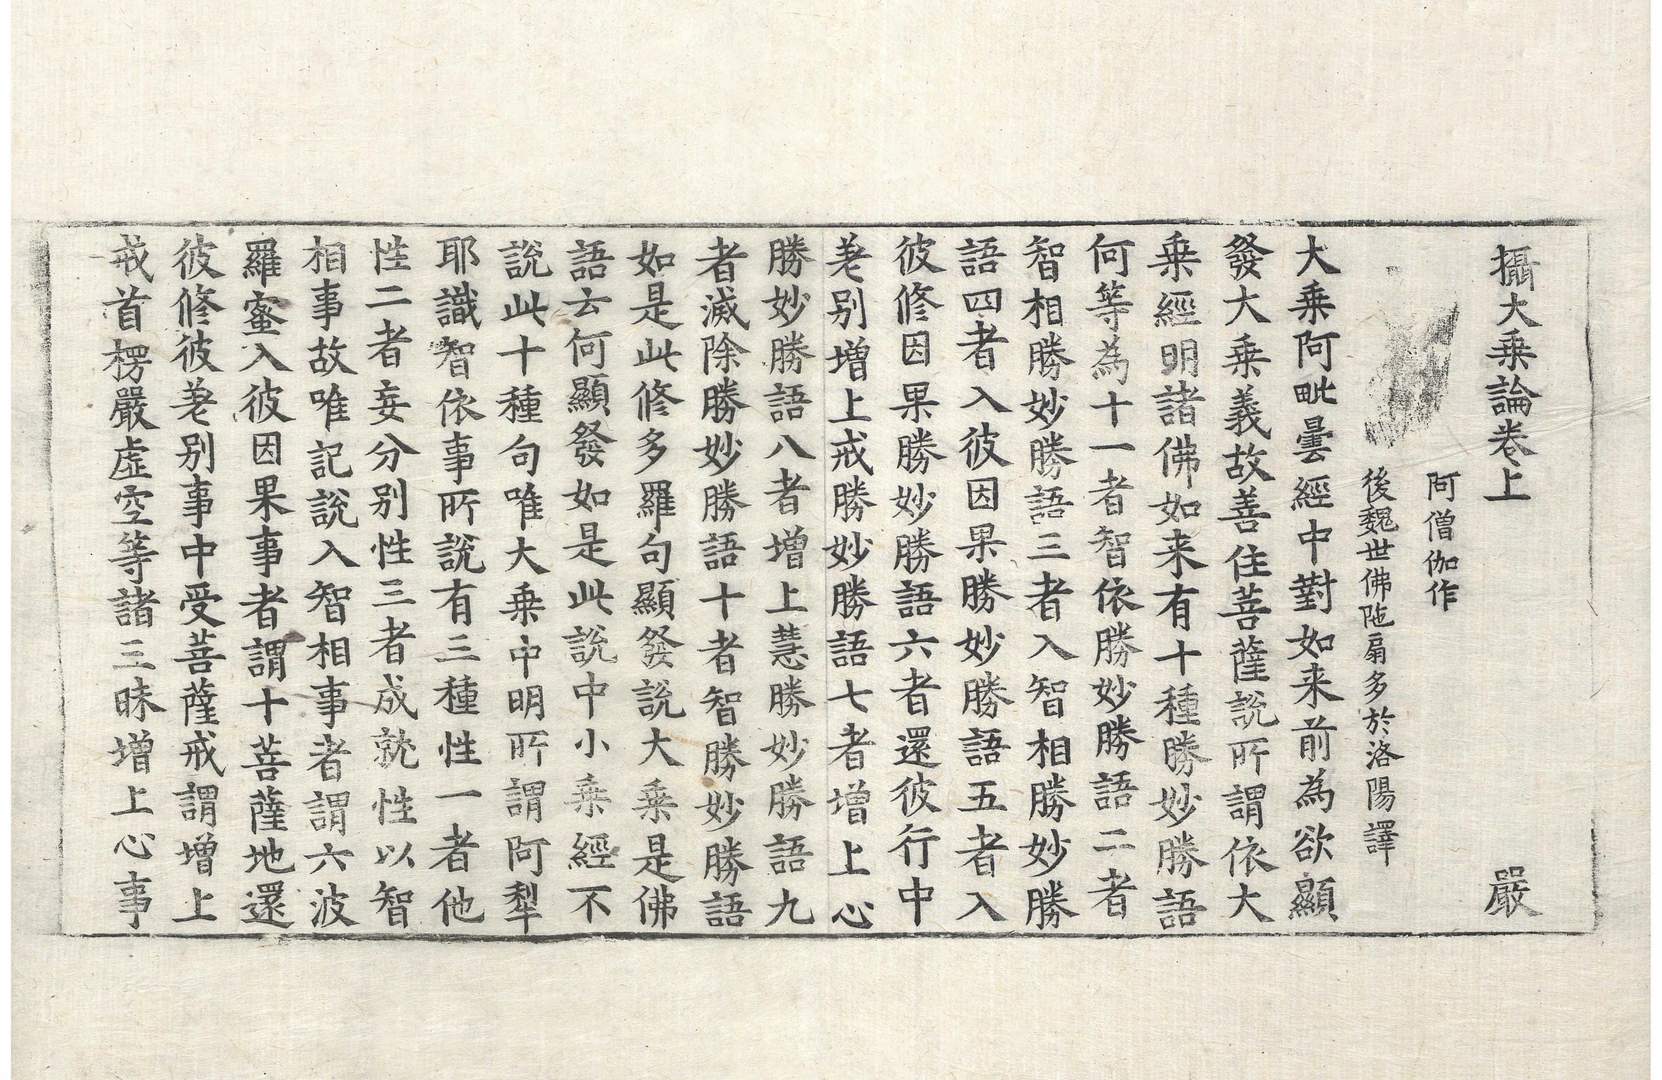 攝大乗論卷上 嚴
阿僧伽作
後魏世佛陁扇多於洛陽譯
大乗阿毗曇經中對如来前為欲顯
發大乗義故善住菩薩説所謂依大
乗經明諸佛如来有十種勝妙勝語
何等為十一者智依勝妙勝語二者
智相勝妙勝語三者入智相勝妙勝
語四者入彼因果勝妙勝語五者入
彼修因果勝妙勝語六者還彼行中
差別增上戒勝妙勝語七者增上心
勝妙勝語八者增上慧勝妙勝語九
者滅除勝妙勝語十者智勝妙勝語
如是此修多羅句顯發説大乗是佛
語云何顯發如是此説中小乗經不
説此十種句唯大乗中明所謂阿犁
耶識智依事所説有三種性一者他
性二者妄分別性三者成就性以智
相事故唯記説入智相事者謂六波
羅蜜入彼因果事者謂十菩薩地還
彼修彼差別事中受菩薩戒謂增上
戒首楞嚴虛空等諸三昧增上心事